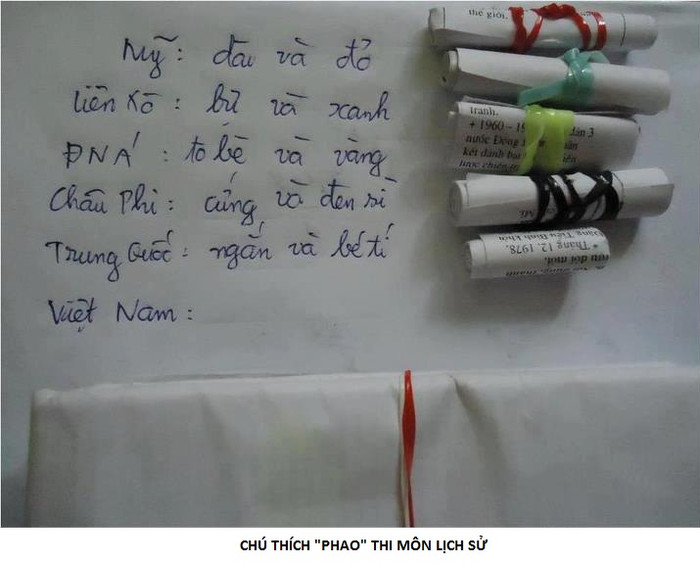 Mỹ : dài và đỏ
Liên Xô : bự và xanh
ĐNÁ : to bè và vàng
Châu Phi : cứng và đen sì
Trung Quốc : ngắn và bé tí
Việt Nam :
thế giới.
tranh.
+ 1960 – 19 dân 3
nước Đông
kết đánh bại
Đặng Tiểu Bình khởi
* Tháng 12. 1978,
đổi mới.
CHÚ THÍCH "PHAO" THI MÔN LỊCH SỬ